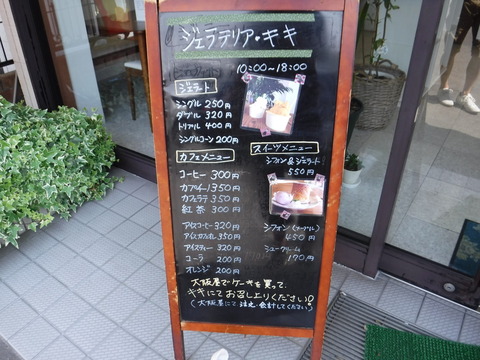 ジェラテリア・キキ
10:00〜18:00
ジェラート
シングル 250円
ダブル 320円
トリプル 400円
シングルコーン 200円
カフェメニュー
コーヒー 300円
カプチーノ 350円
カフェラテ 350円
紅茶 300円
アイスコーヒー 320円
アイスカフェオレ 350円
アイスティー 320円
コーラ 200円
オレンジ 200円
スイーツメニュー
シフォン&ジェラート
550円
シフォン(メープル)
450円
シュークリーム
170円
大阪屋でケーキを買って
キキにてお召し上りください!
(大阪屋にて注文・会計してください)